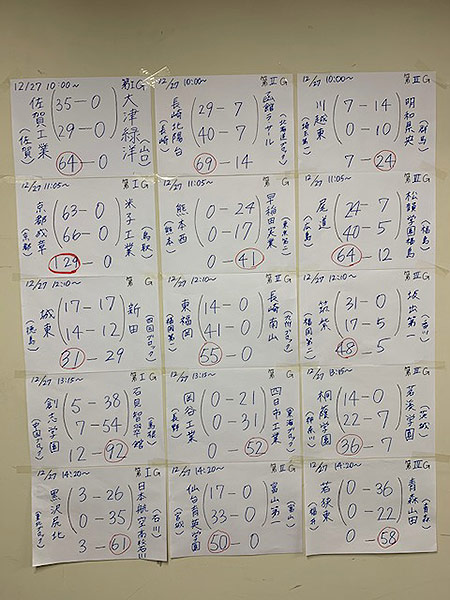 12/27 10:00~ 第ⅠG
佐賀工業
(佐賀)
35-0
29-0
64-0
大津緑洋
(山口)
12/27 10:00~ 第ⅡG
長崎北陽台
(長崎)
29-7
40-7
69-14
函館ラ・サール
(北海道ブロック)
12/27 10:00~ 第ⅢG
川越東
(埼玉)
7-14
0-10
7-24
明和県央
(群馬)
12/27 11:05~ 第ⅠG
京都成章
(京都)
63-0
66-0
129-0
米子工業
(鳥取)
12/27 11:05~ 第ⅡG
熊本西
(熊本)
0-24
0-17
0-41
早稲田実業
(東京第二)
12/27 11:05~ 第ⅢG
尾道
(広島)
24-7
40-5
64-12
松韻学園福島
(福島)
12/27 12:10~ 第ⅠG
城東
(徳島)
17-17
14-12
31-29
新田
(四国ブロック)
12/27 12:10~ 第ⅡG
東福岡
(福岡第一)
14-0
41-0
55-0
長崎南山
(九州ブロック)
12/27 12:10~ 第ⅢG
筑紫
(福岡第二)
31-0
17-5
48-5
坂出第一
(香川)
12/27 13:15~ 第ⅠG
創志学園
(中国ブロック)
5-38
7-54
12-92
石見智翠館
(島根)
12/27 13:15~ 第ⅡG
岡谷工業
(長野)
0-21
0-31
0-52
四日市工業
(東海ブロック)
12/27 13:15~ 第ⅢG
桐蔭学園
(神奈川)
14-0
22-7
36-7
茗溪学園
(茨城)
12/27 14:20~ 第ⅠG
黒沢尻北
(東北ブロック)
3-26
0-35
3-61
日本航空高校石川
(石川)
12/27 14:20~ 第ⅡG
仙台育英学園
(宮城)
17-0
33-0
50-0
富山第一
(富山)
12/27 14:20~ 第ⅢG
若狭東
(福井)
0-36
0-22
0-58
青森山田
(青森)